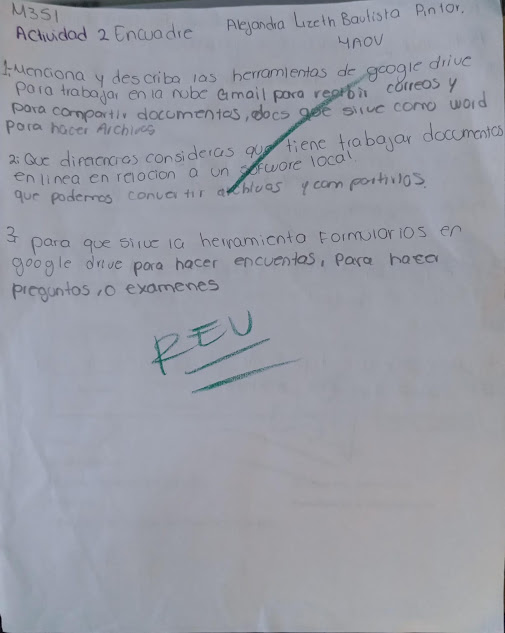 M3S1
Alejandra Lizeth Bautista Pintor.
Actividad 2 Encuadre
4AOV
1.-Menciona y describa las herramientas de google drive
para trabajar en la nube Gmail para recibir correos y
para compartir documentas, docs que sirve como word
para hacer Archivos
2: Que diferencias consideras que tiene trabajar documentos
en linea en relacion a un software local.
que podemos convertir archivos y compartirlos.
3 para que sirve la herramienta Formularios en
google drive para hacer encuentas, Para hacer
preguntas, o examenes
REV